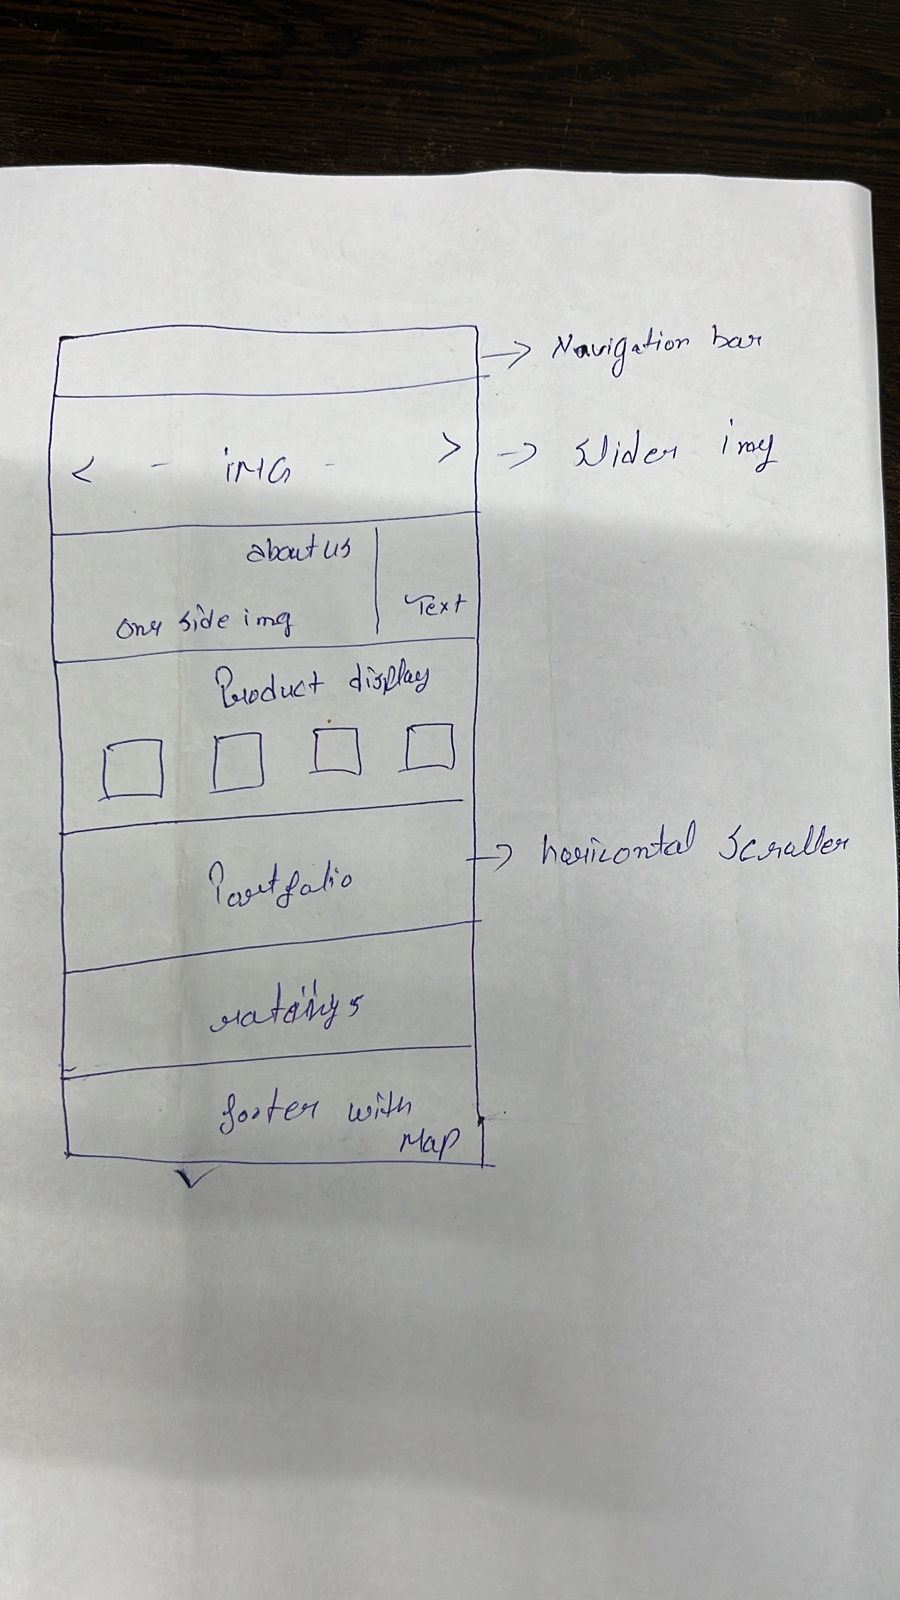 Navigation bar
< - IMG - >
Slider img
about us
one side img
Text
Product display
Portfolio
horizontal Scroller
ratings
footer with
Map